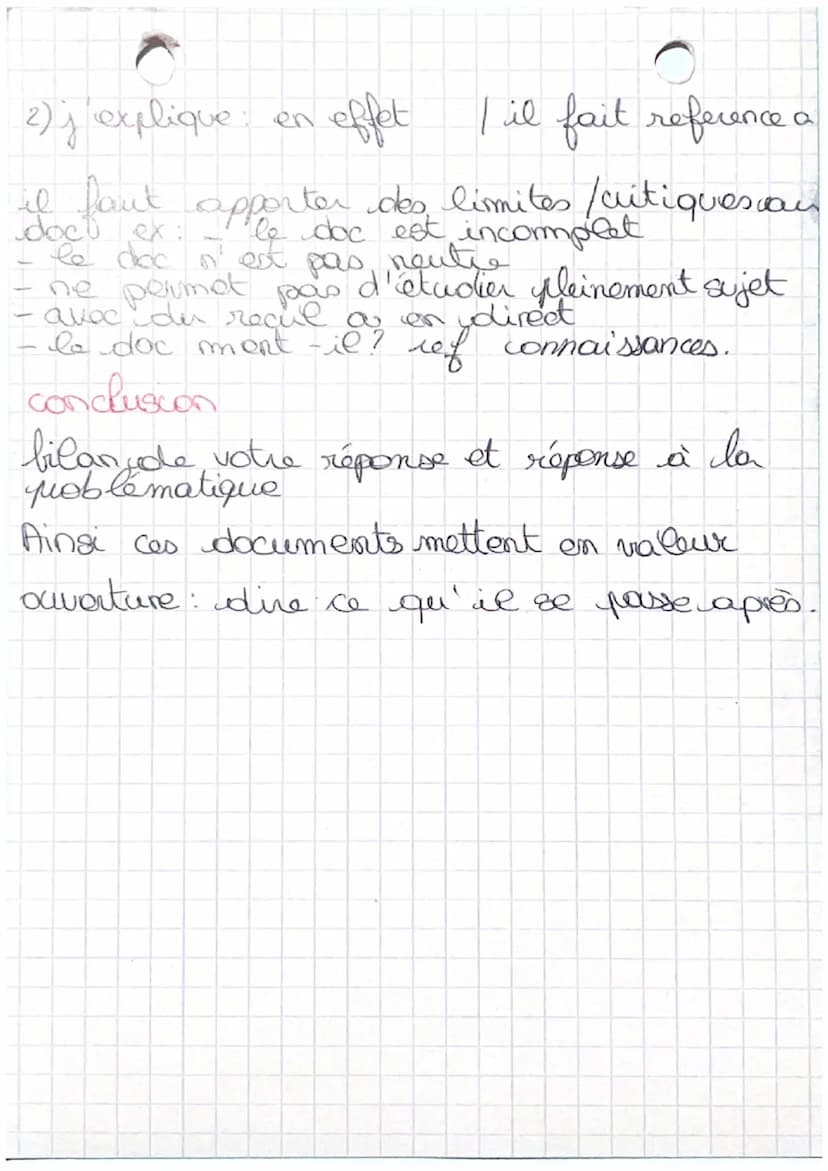 2) j'explique : en effet / il fait reference a
il faut apporter des limites / critiques au
doc ex : - le doc est incomplet
- le doc n'est pas neutre
- ne permet pas d'étudier pleinement sujet
- avec du recul en direct
- le doc ment-il? ref connaissances.
conclusion
bilan de votre réponse et réponse à la
problématique
Ainsi ces documents mettent en valeur
ouverture : dire ce qu'il se passe après.